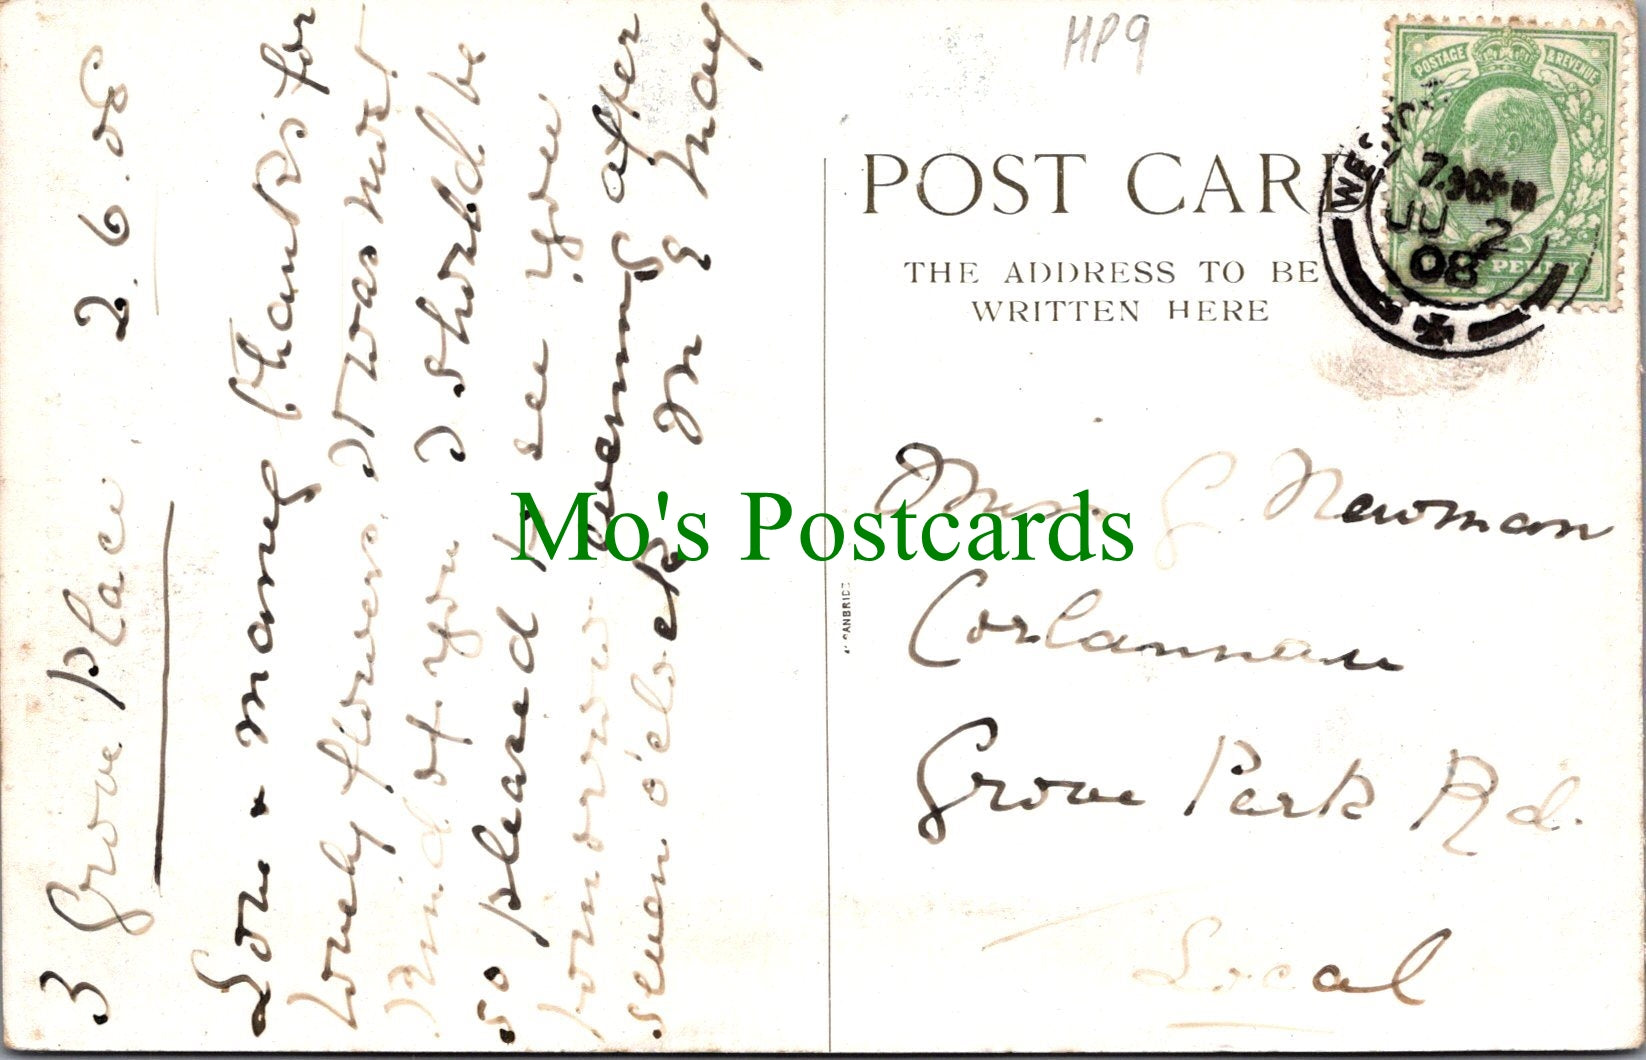 3 Grove place 2.6.08
Love & many thanks for
lovely flowers. It was most
kind of you I should be
so pleased to see you
tomorrow evening after
seven o'clock
M E May
HP9
POST CARD
THE ADDRESS TO BE
WRITTEN HERE
POSTAGE & REVENUE
PENNY
7.30PM
JU 2
08
Miss G. Newman
Corlannau
Grove Park Rd.
Local
Mo's Postcards